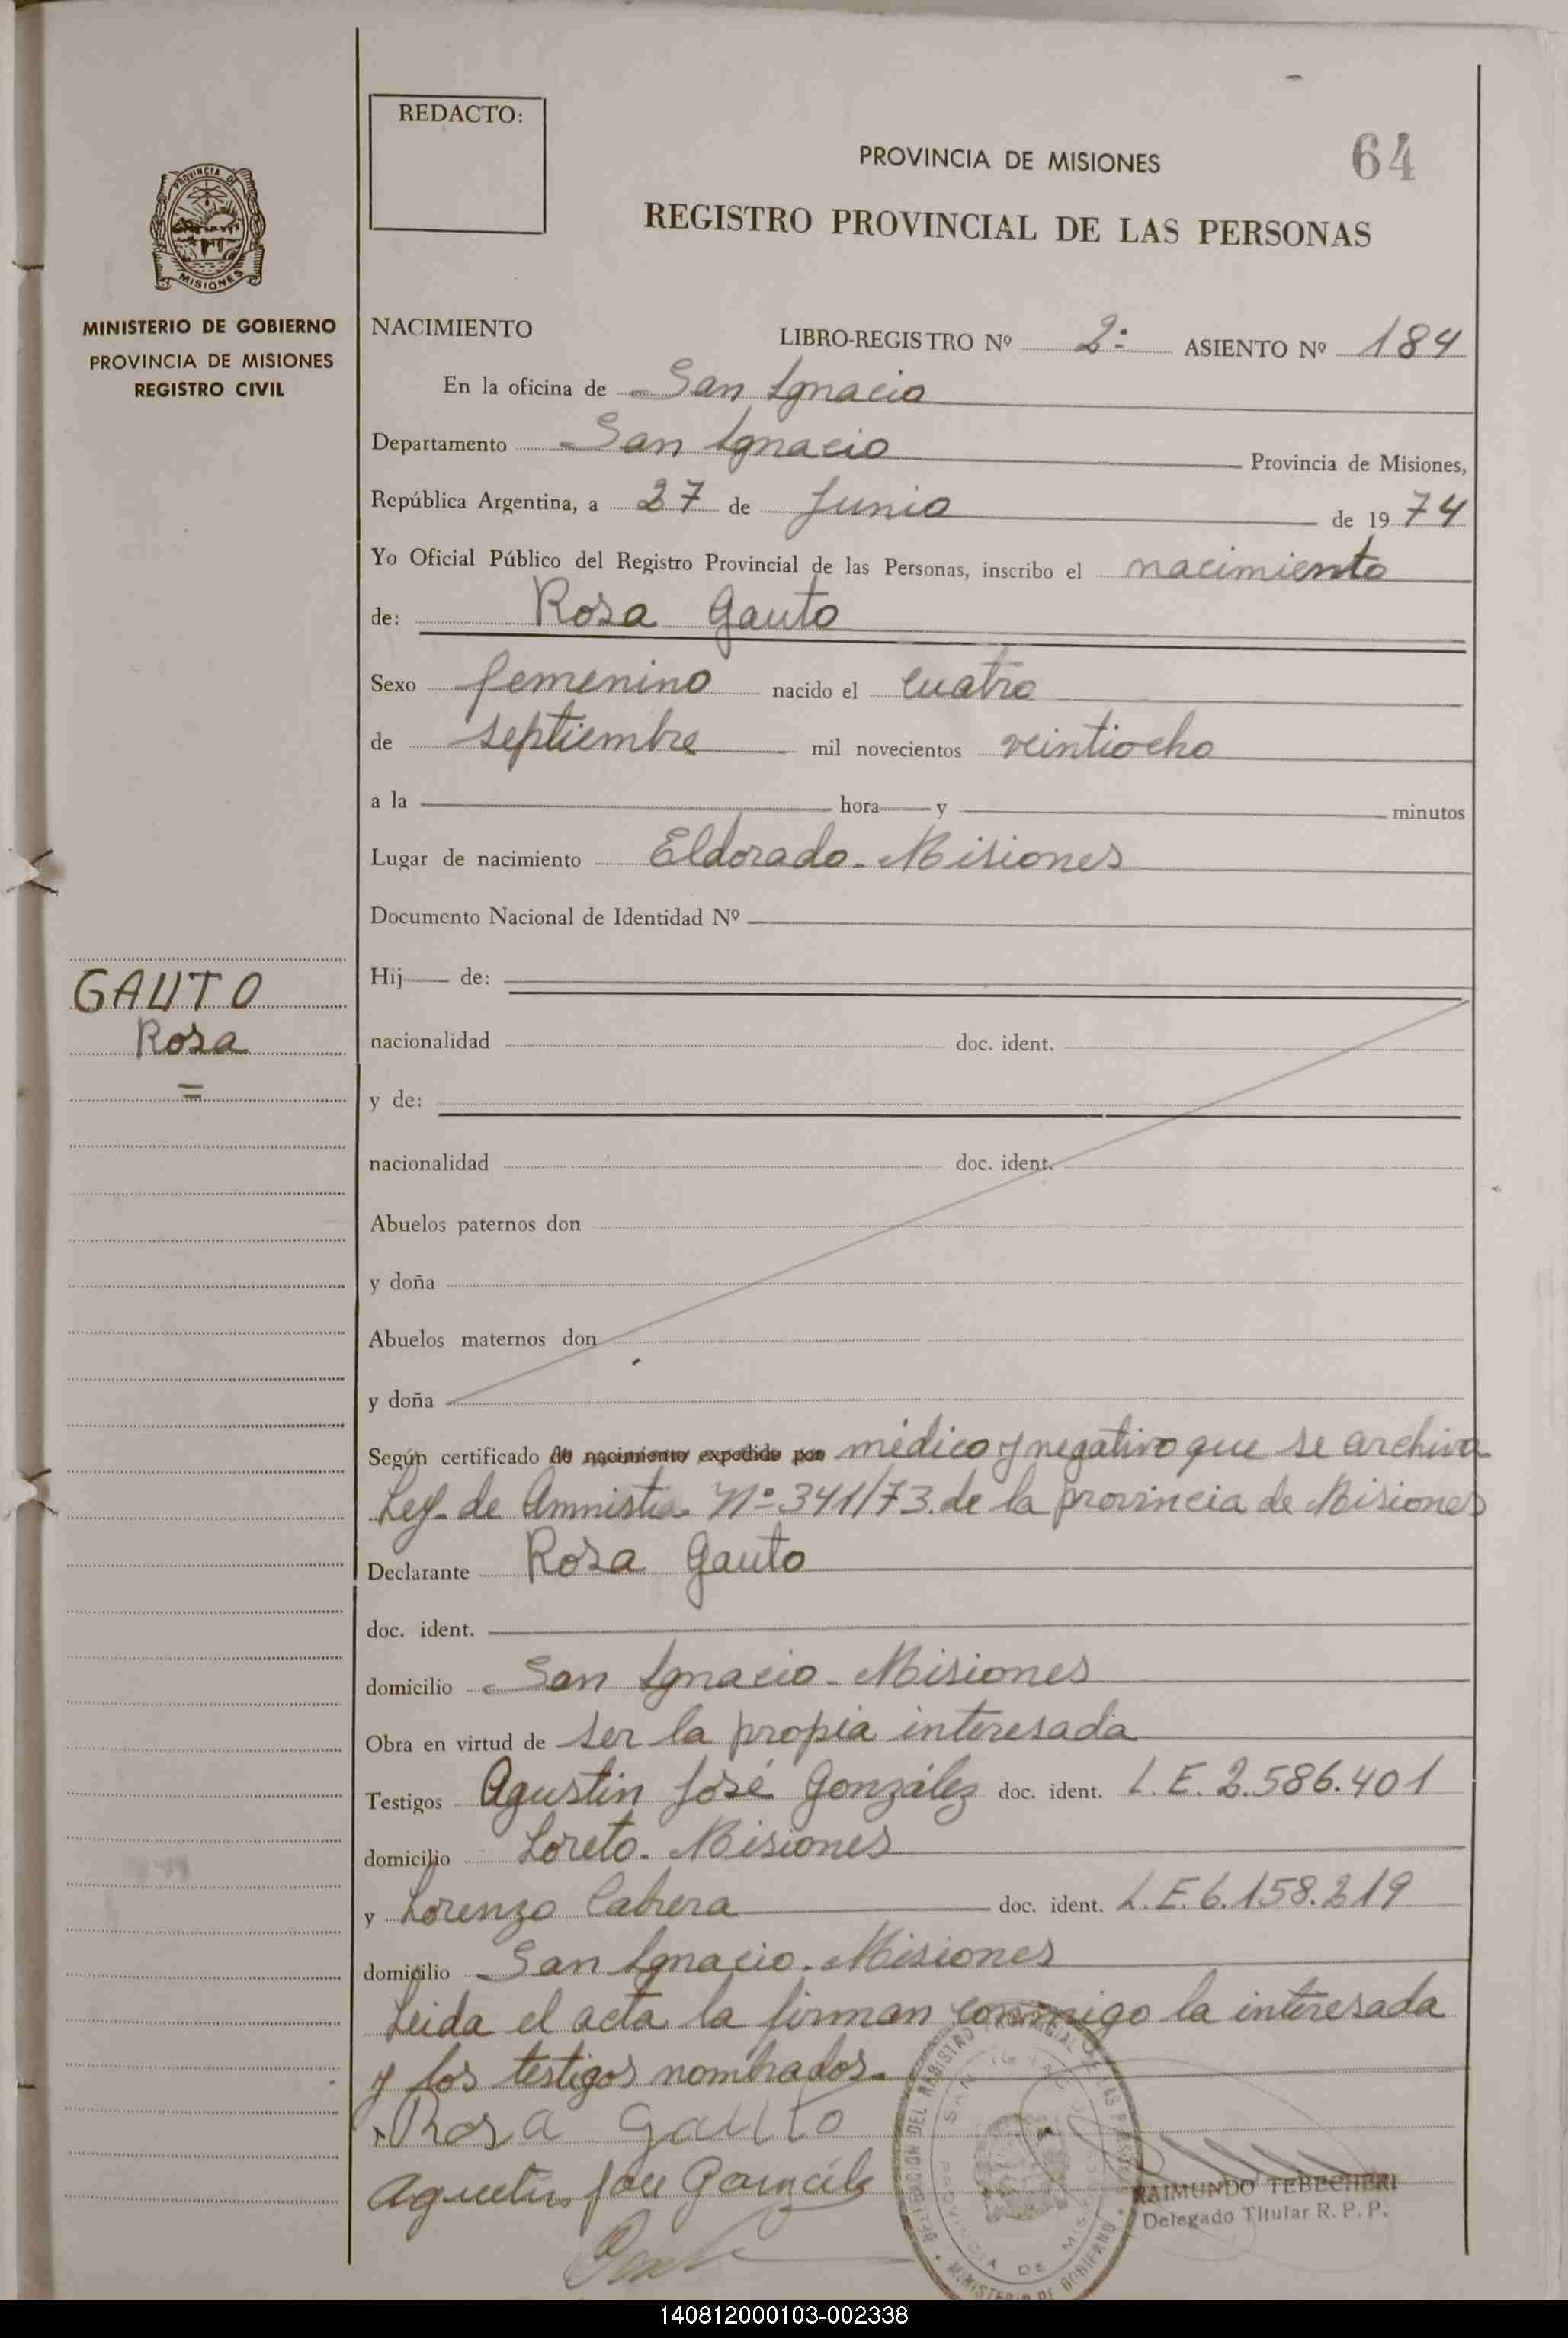 REDACTO:
PROVINCIA DE MISIONES
64
REGISTRO PROVINCIAL DE LAS PERSONAS
PROVINCIA DE
MISIONES
MINISTERIO DE GOBIERNO
PROVINCIA DE MISIONES
REGISTRO CIVIL
NACIMIENTO LIBRO-REGISTRO Nº 2º ASIENTO Nº 184
En la oficina de San Ignacio
Departamento San Ignacio Provincia de Misiones,
República Argentina, a 27 de Junio de 1974
Yo Oficial Público del Registro Provincial de las Personas, inscribo el nacimiento
de: Rosa Gauto
Sexo femenino nacido el cuatro
de septiembre mil novecientos veintiocho
a la hora y minutos
Lugar de nacimiento Eldorado - Misiones
Documento Nacional de Identidad Nº
GAUTO
Rosa
=
Hij de:
nacionalidad doc. ident.
y de:
nacionalidad doc. ident.
Abuelos paternos don
y doña
Abuelos maternos don
y doña
Según certificado de nacimiento expedido por médico y negativo que se archiva
Ley de Amnistia Nº 341/73 de la provincia de Misiones
Declarante Rosa Gauto
doc. ident.
domicilio San Ignacio - Misiones
Obra en virtud de ser la propia interesada
Testigos Agustin José González doc. ident. L.E. 2.586.401
domicilio Loreto - Misiones
y Lorenzo Cabrera doc. ident. L.E. 6.158.219
domicilio San Ignacio - Misiones
Leida el acta la firman conmigo la interesada
y los testigos nombrados.
Rosa Gauto
Agustin José González
RAIMUNDO TEBECHERI
Delegado Titular R. P. P.
DELEGACION DEL REGISTRO PROVINCIAL DE LAS PERSONAS
SAN IGNACIO
PROVINCIA DE MISIONES
MINISTERIO DE GOBIERNO
140812000103-002338